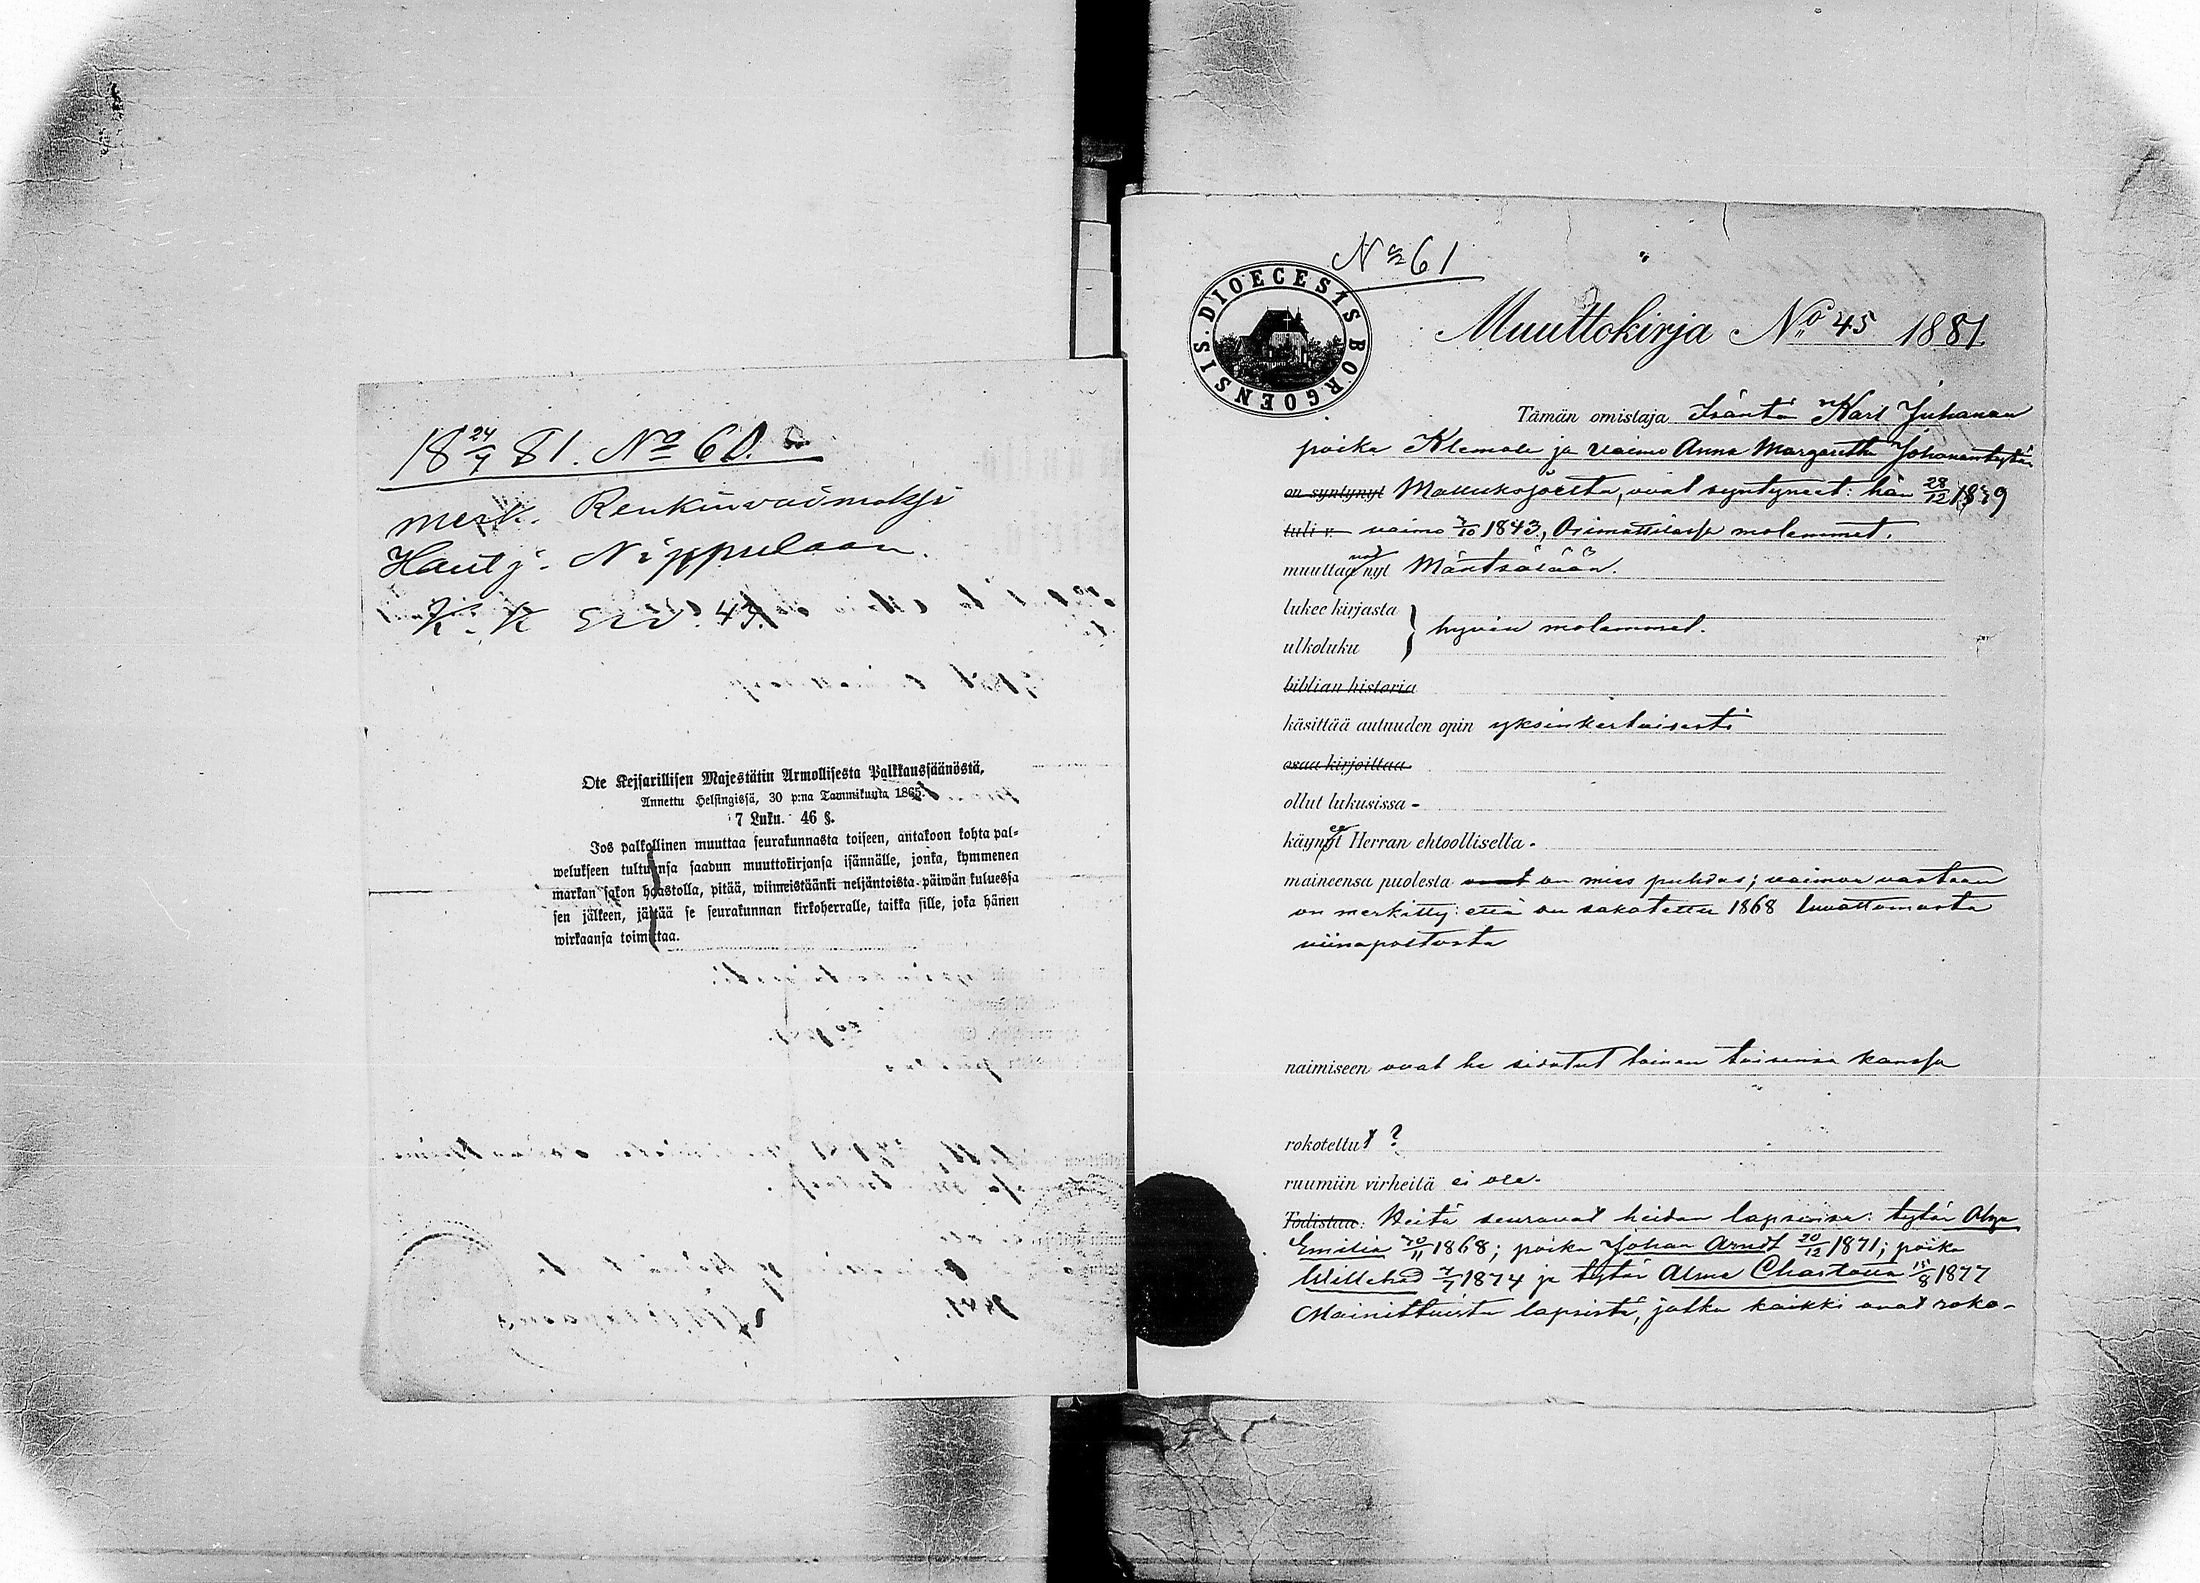 18 24/7 81. No 60.
merk. Renkinvaimoksi
Hautj. Nippulaan.
K. K Siv. 43.
Ote Keisarillisen Majestätin Armollisesta Palkkaussäänöstä,
Annettu Helsingissä, 30 p:na Tammikuuta 1865.
7 Luku. 46 §.
Jos palkollinen muuttaa seurakunnasta toiseen, antakoon kohta pal-
welukseen tultuansa saadun muuttokirjansa isännälle, jonka, kymmenen
markan sakon haastolla, pitää, wiimeistäänki neljäntoista päiwän kuluessa
sen jälkeen, jättää se seurakunnan kirkoherralle, taikka sille, joka hänen
wirkaansa toimittaa.
No 61
DIOECESIS BORGOENSIS.
Muuttokirja No 45 1881.
Tämän omistaja Isäntä Karl Juhanan
poika Klemola ja vaimo Anna Margaretha Johanintytär
on syntynyt Mallusjoelta, ovat syntyneet: hän 28/12 1839
tuli r. vaimo 7/10 1843, Orimattilassa molemmat.
muuttavat nyt Mäntsälään.
lukee kirjasta
hyvin molemmat.
ulkoluku
biblian historia
käsittää autuuden opin yksinkertaisesti
osaa kirjoittaa
ollut lukusissa -
käyneet Herran ehtoollisella -
maineensa puolesta ovat on mies puhdas; vaimoa vastaan
on merkitty: että on sakotettu 1868 luvattomasta
viinapoltosta
naimiseen ovat he sidotut toinen toisensa kanssa
rokotettu ?
ruumiin virheitä ei ole.
Todistaa: Heitä seuraavat heidän lapsensa: tytär Olga
Emilia 30/11 1868; poika Johan Arndt 20/12 1871; poika
Willehad 7/7 1874 ja tytär Alma Charlotta 15/8 1877
Mainittuista lapsista, jotka kaikki ovat roko-